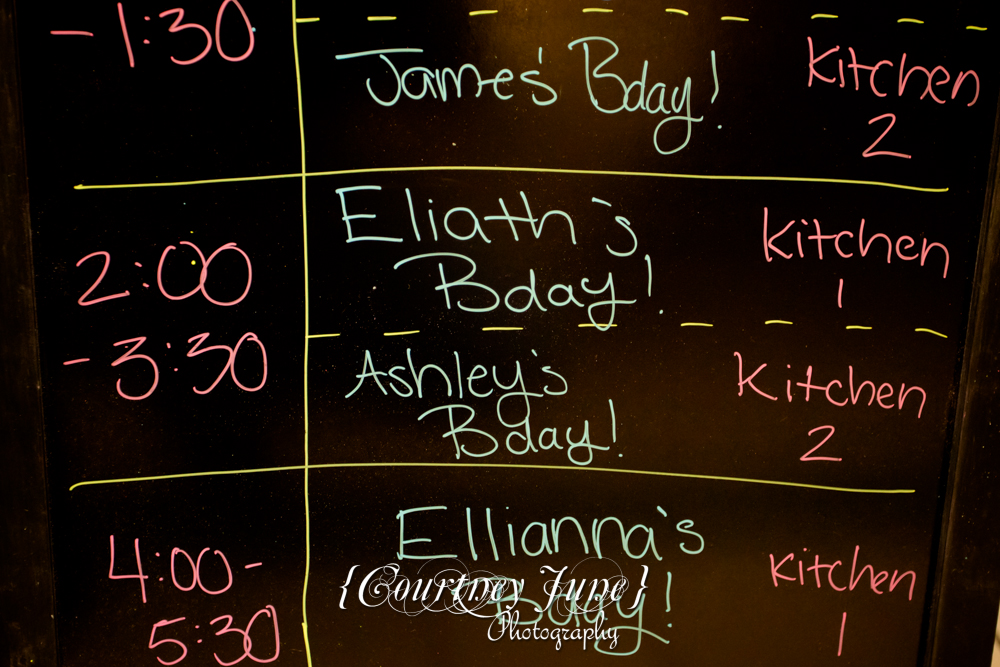 - 1:30
James' Bday!
Kitchen
2
2:00
- 3:30
Eliath's
Bday!
Kitchen
1
Ashley's
Bday!
Kitchen
2
4:00 -
5:30
Ellianna's
Bday!
Kitchen
1
{Courtney June}
Photography